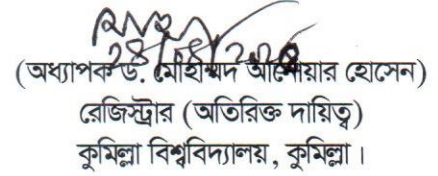 (অধ্যাপক ড. মোহাম্মদ আনোয়ার হোসেন)
রেজিস্ট্রার (অতিরিক্ত দায়িত্ব)
কুমিল্লা বিশ্ববিদ্যালয়, কুমিল্লা।